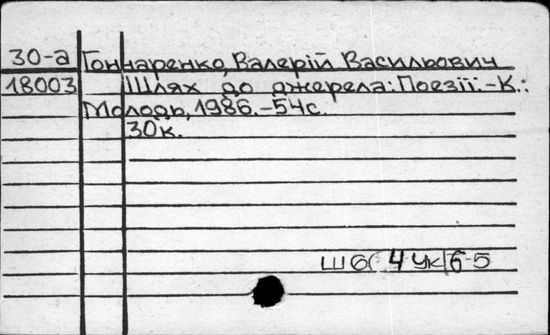 30-а Гончаренко, Валерій Васильович
18003 Шлях до джерела: Поезії. - К.:
Молодь, 1986. - 54 с.
30 к.
Ш6(4Ук)6-5